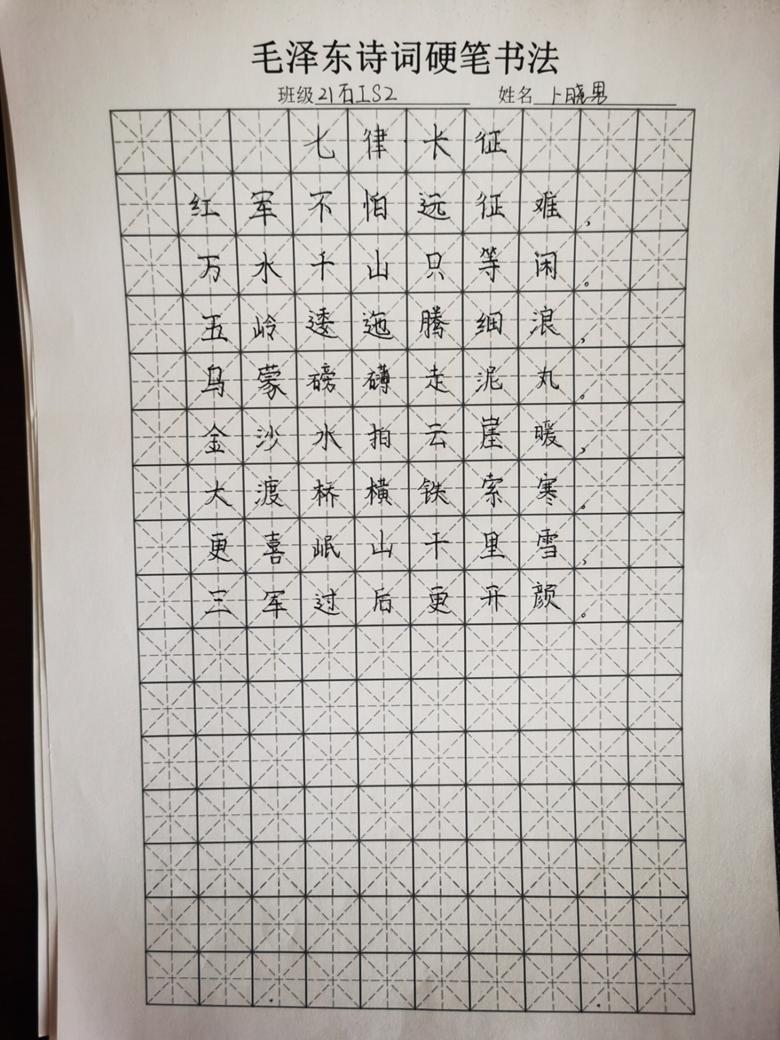 毛泽东诗词硬笔书法
班级 21石工S2 姓名 卜晓男
七律·长征
红军不怕远征难，
万水千山只等闲。
五岭逶迤腾细浪，
乌蒙磅礴走泥丸。
金沙水拍云崖暖，
大渡桥横铁索寒。
更喜岷山千里雪，
三军过后更开颜。